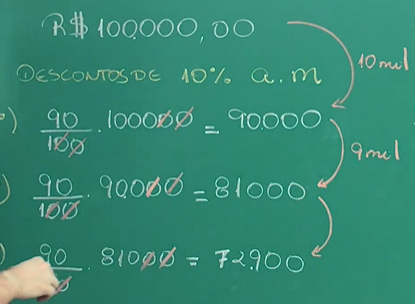 R$ 100.000,00
① DESCONTOS DE 10% a.m
10 mil
) 90/100 . 100000 = 90.000
9 mil
) 90/100 . 90000 = 81000
) 90/ . 81000 = 72.900